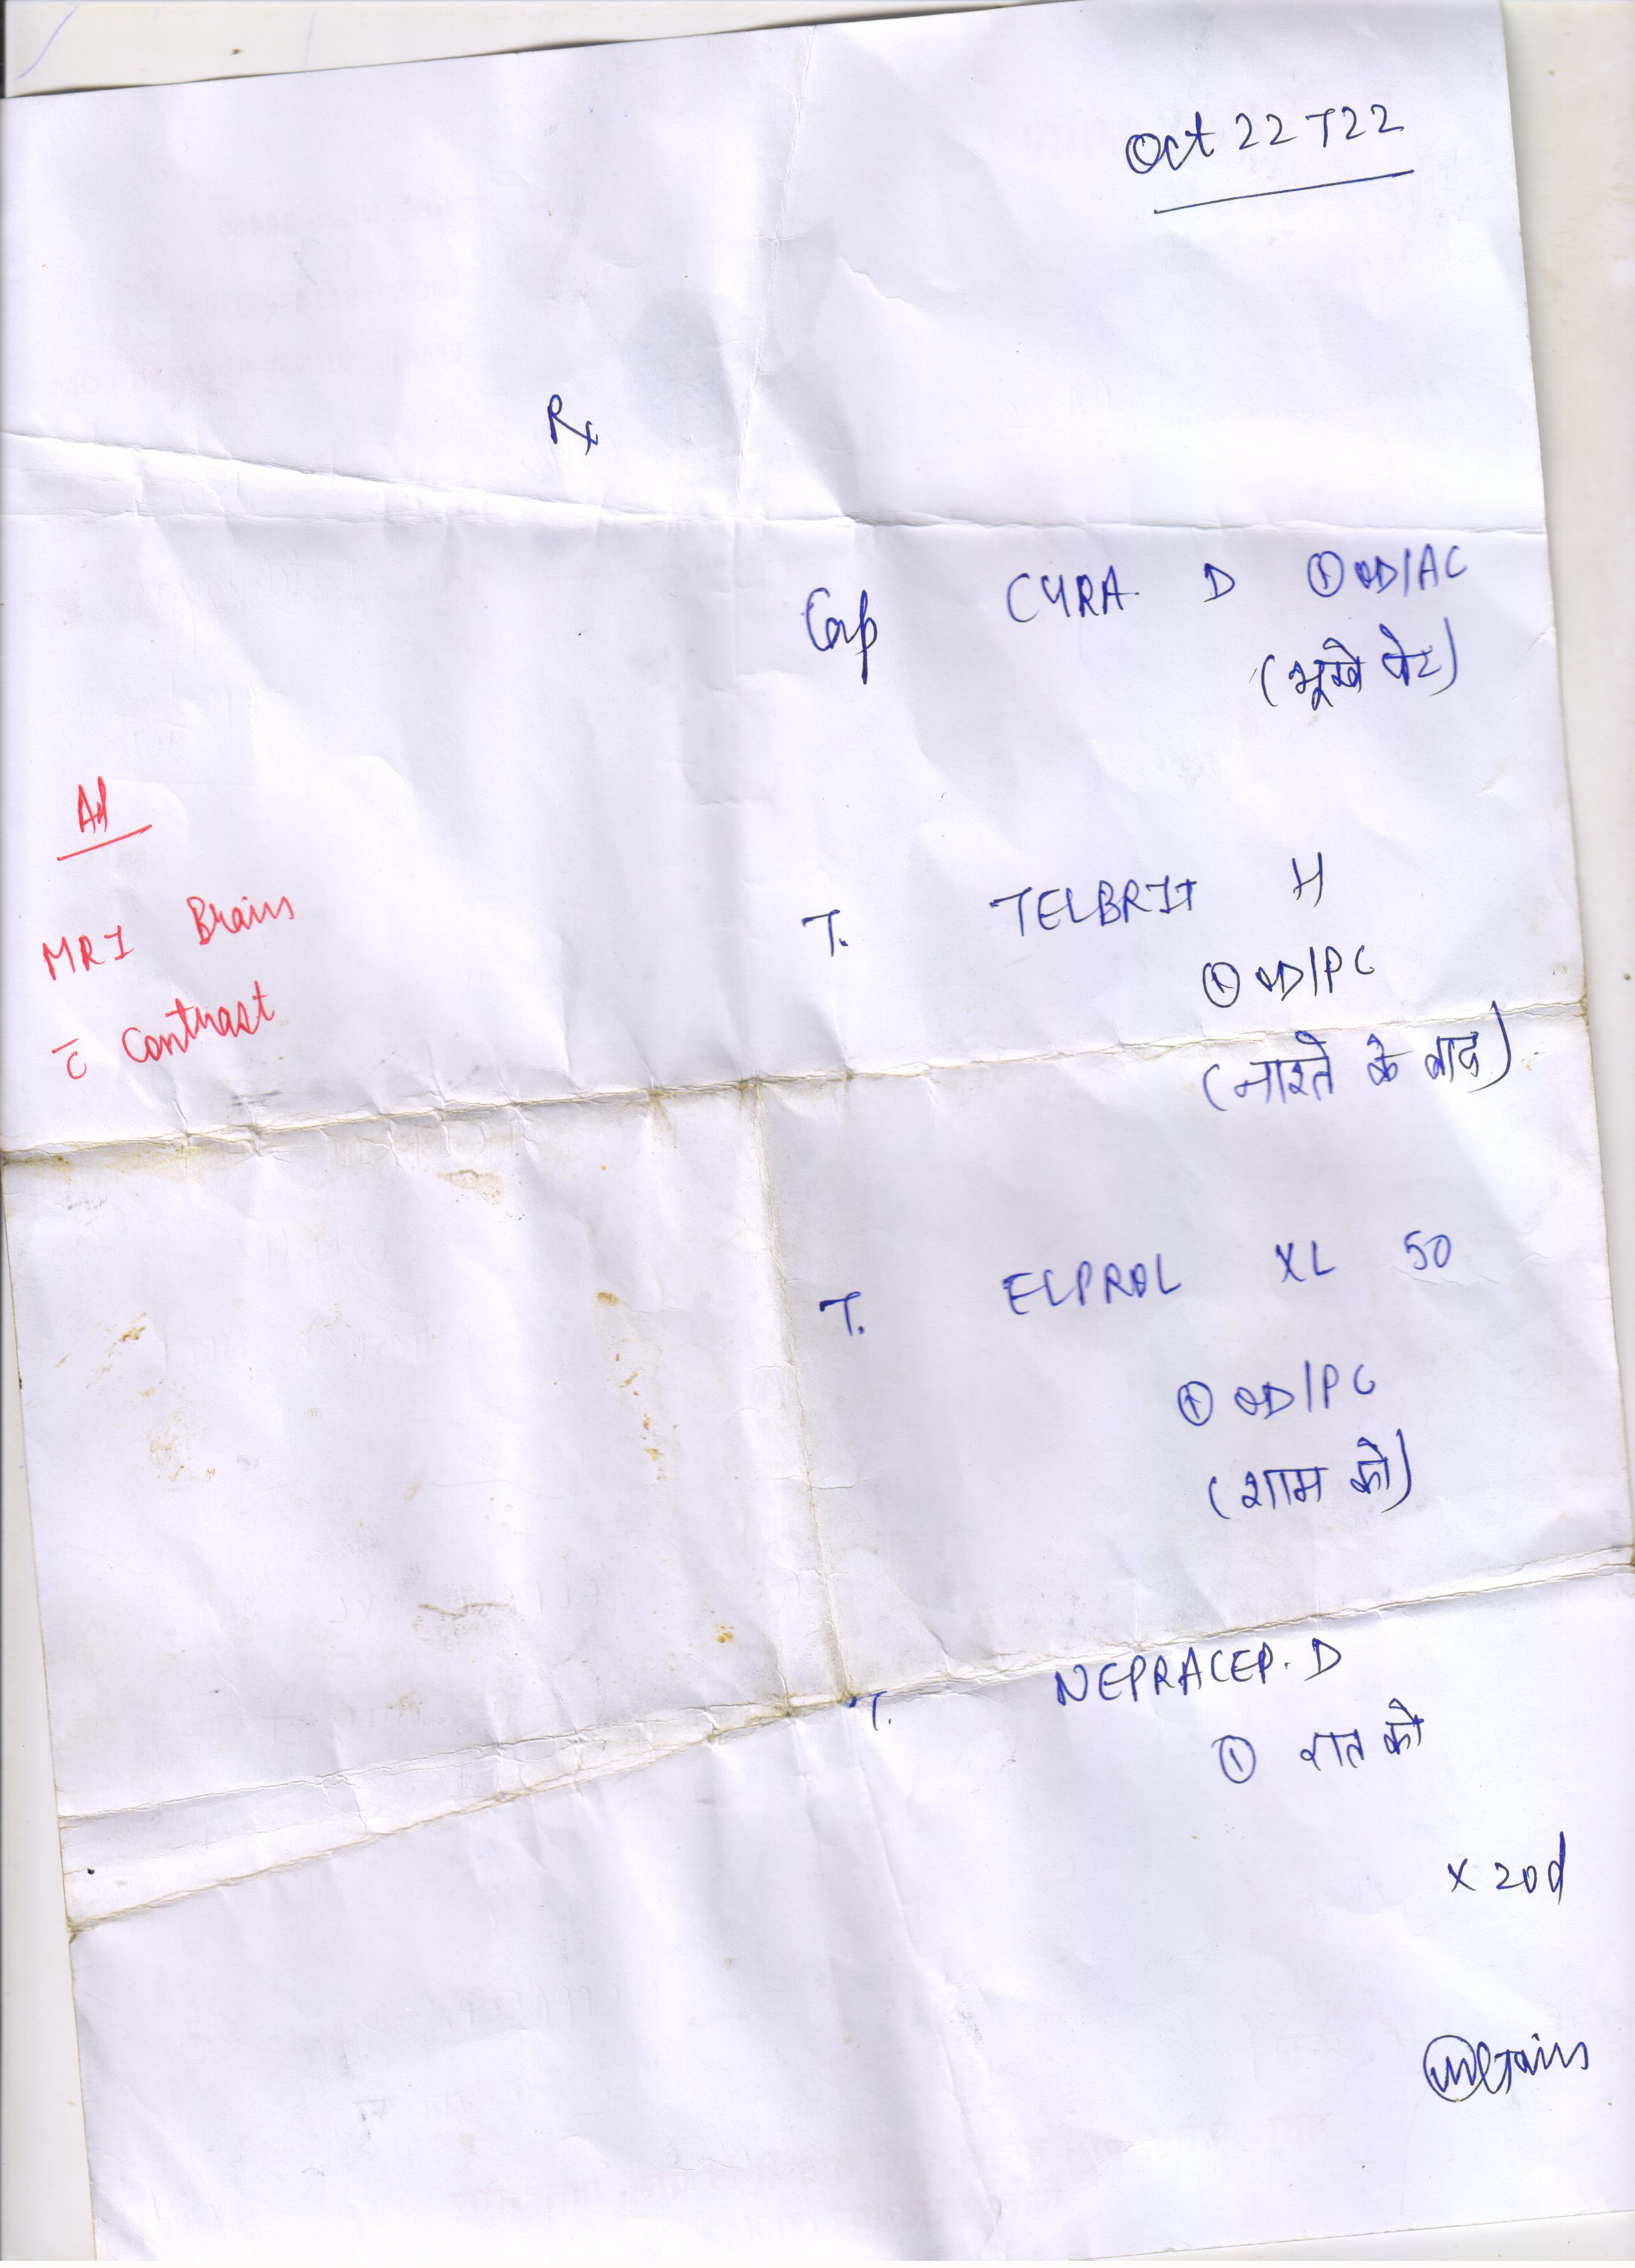 Oct 22 T22
Rx
Cap CYRA D ① OD/AC
(भूखे पेट)
Ad
MRI Brain
c̄ Contrast
T. TELBRIT H
① OD/PC
(नाश्ते के बाद)
T. ELPROL XL 50
① OD/PC
(शाम को)
T. NEPRACEP. D
① रात को
x 20d